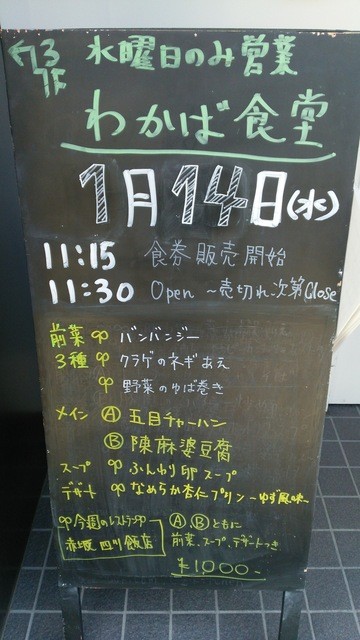 水曜日のみ営業
わかば食堂
1月14日(水)
11:15 食券販売開始
11:30 Open ~売切れ次第Close
前菜 バンバンジー
3種 クラゲのネギあえ
野菜のゆば巻き
メイン Ⓐ 五目チャーハン
Ⓑ 陳麻婆豆腐
スープ ふんわり卵スープ
デザート なめらか杏仁プリン~ゆず風味~
今週のレストラン
赤坂 四川飯店
Ⓐ、Ⓑともに
前菜、スープ、デザートつき
¥1,000-